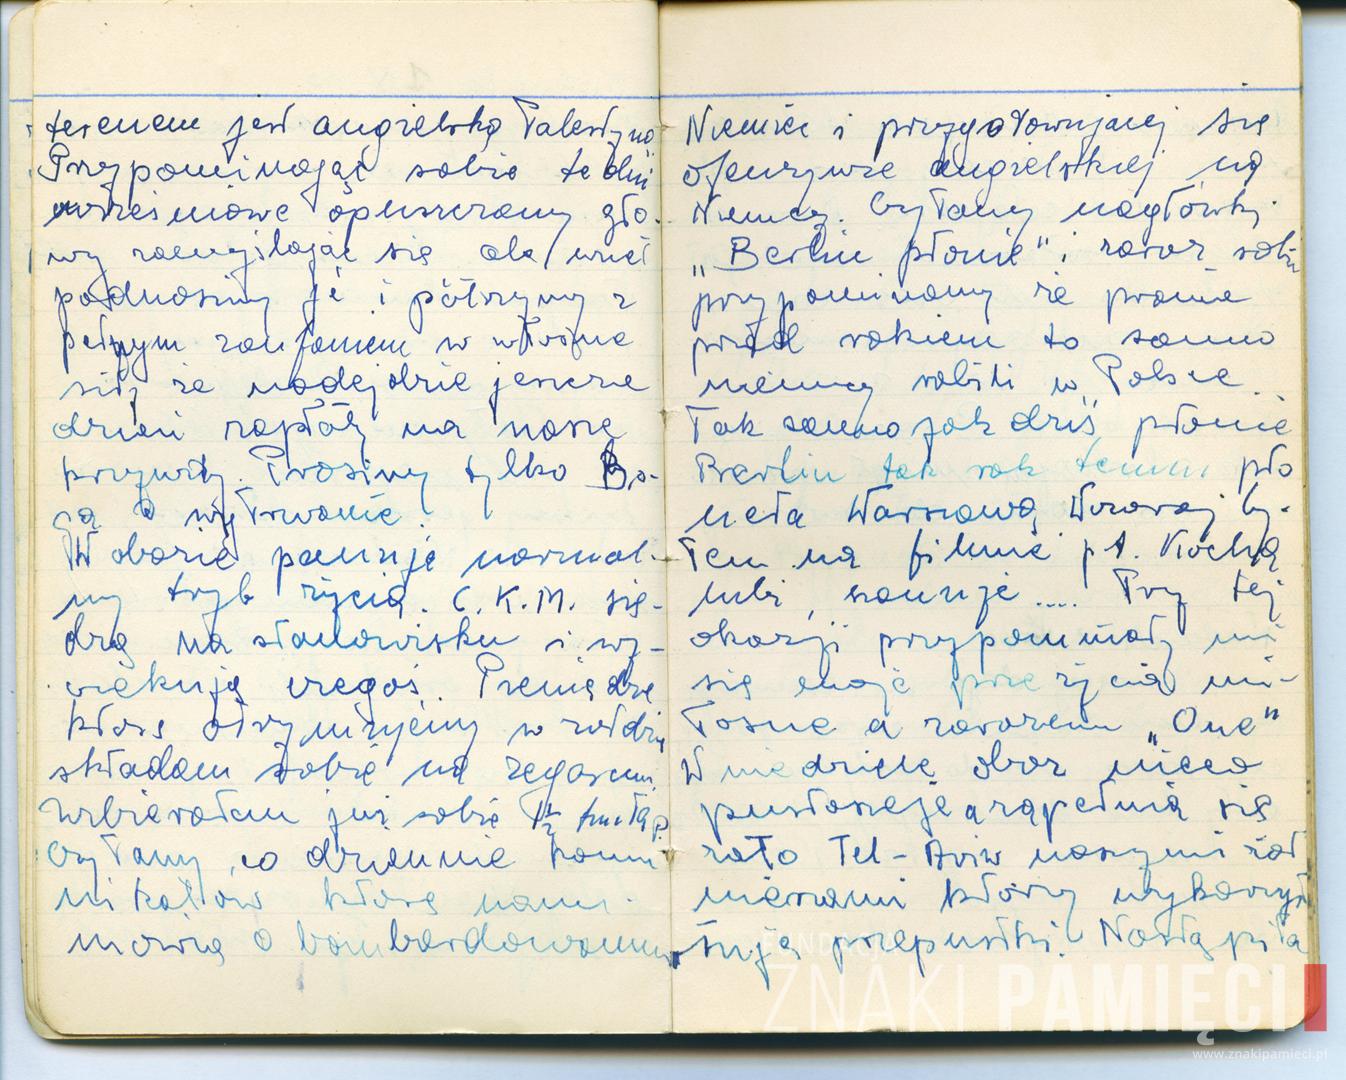 terenem jest angielska Palestyna
Przypominając sobie te dni
wrześniowe opuszczamy gło-
wy zamyślając się ale wnet
podnosimy je i patrzymy z
pełnym zaufaniem w własne
siły że nadejdzie jeszcze
dzień zapłaty na nasze
krzywdy. Prosimy tylko Bo-
ga o wytrwanie
W obozie panuje normal-
ny tryb życia. C.K.M. sie-
dzą na stanowisku i wy-
czekują czegoś. Pieniądze
które otrzymujemy w żołdzie
składam sobie na zegarek,
Uzbierałem już sobie 1½ funta p.
Czytamy codziennie komu-
nikatów które nam
mówią o bombardowaniu
Niemiec i przygotowującej się
ofenzywie angielskiej na
Niemcy. Czytamy nagłówki
„Berlin płonie" i zaraz sobie
przypominamy że prawie
przed rokiem to samo
niemcy robili w Polsce
Tak samo jak dziś płonie
Berlin tak rok temu pło
nęła Warszawa Wczoraj by-
łem na filmie pt. Kocha
lubi, szanuje.... Przy tej
okazji przypomniały mi
się moje przeżycia mi-
łosne a zarazem „One"
W niedzielę obóz nieco
pustoszeje a zapełnia się
zato Tel-Aviv naszymi żoł
nierzami którzy wykorzy
stują przepustki. Nastąpiła
FUNDACJA
ZNAKI PAMIĘCI
www.znakipamieci.pl